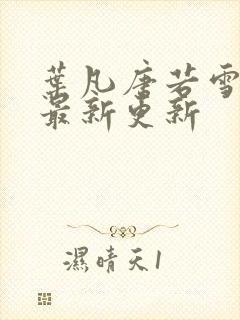 葉凡唐若雪
最新更新
濕晴天1